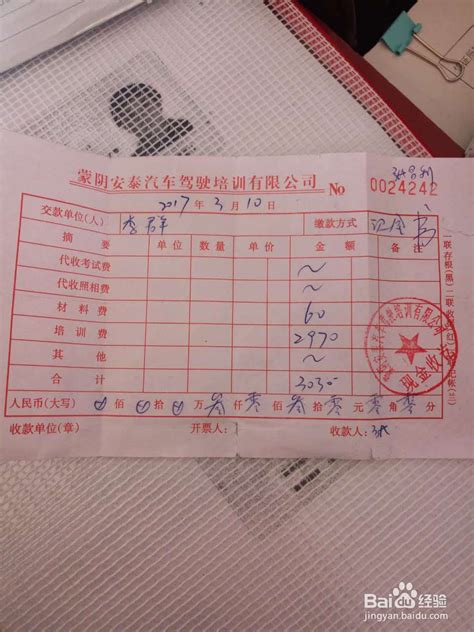 蒙阴安泰汽车驾驶培训有限公司 No 0024242
2017年3月10日
交款单位(人) 李 缴款方式 现金
摘要 单位 数量 单价 金额 备注
代收考试费 ~
代收照相费 ~
材料费 60
培训费 2970
其他 ~
合计 3030
人民币(大写) ⊗佰⊗拾⊗万叁仟零佰叁拾零元零角零分
收款单位(章) 开票人: 收款人:
现金收讫
Baidu经验
jingyan.baidu.com